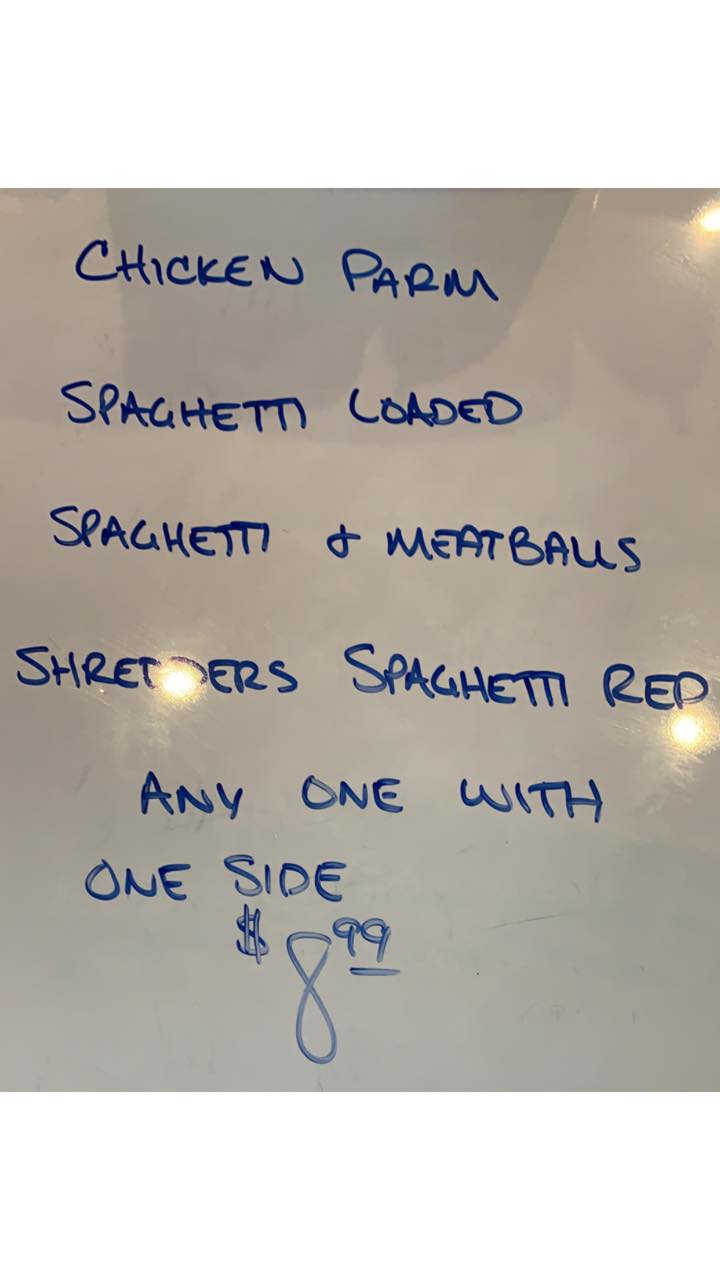 CHICKEN PARM
SPAGHETTI LOADED
SPAGHETTI & MEATBALLS
SHREDDERS SPAGHETTI RED
ANY ONE WITH
ONE SIDE
$8.99